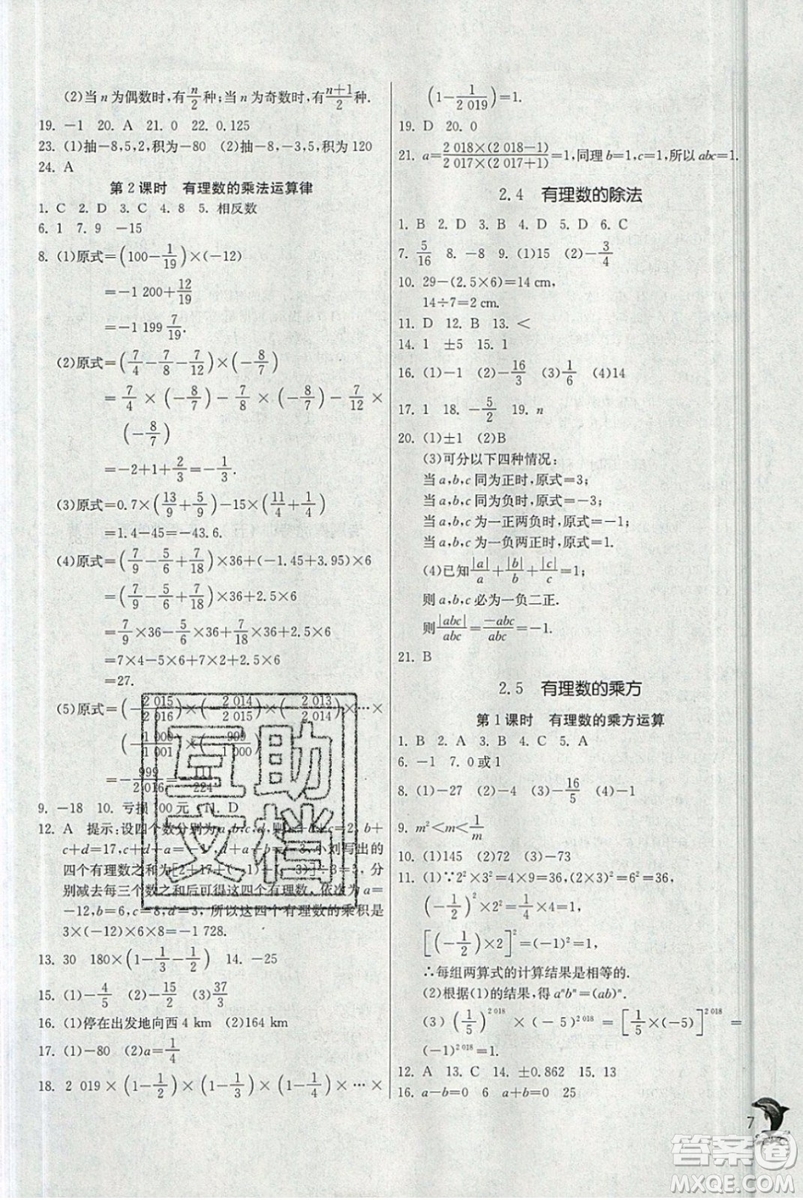 (2)当 n 为偶数时,有n/2种;当 n 为奇数时,有(n+1)/2种.
19. -1 20. A 21. 0 22. 0.125
23. (1)抽-8,5,2,积为-80 (2)抽-8,-3,5,积为 120
24. A
第 2 课时 有理数的乘法运算律
1. C 2. D 3. C 4. 8 5. 相反数
6. 1 7. 9 -15
8. (1)原式=(100-1/19)×(-12)
=-1 200+12/19
=-1 199 7/19.
(2)原式=(7/4-7/8-7/12)×(-8/7)
=7/4×(-8/7)-7/8×(-8/7)-7/12×
(-8/7)
=-2+1+2/3=-1/3.
(3)原式=0.7×(13/9+5/9)-15×(11/4+1/4)
=1.4-45=-43.6.
(4)原式=(7/9-5/6+7/18)×36+(-1.45+3.95)×6
=(7/9-5/6+7/18)×36+2.5×6
=7/9×36-5/6×36+7/18×36+2.5×6
=7×4-5×6+7×2+2.5×6
=27.
(5)原式=(-2 015/2 016)×(-2 014/2 015)×(-2 013/2 014)×…×
(-1 000/1 001)×(-999/1 000)
=-999/2 016=-/224
9. -18 10. 亏损 100 元 11. D
12. A 提示:设四个数分别为 a,b,c,d,则a+b+c=2,b+
c+d=17,c+d+a=-1,d+a+b=-3.小刘写出的
四个有理数之和为[2+17+(-1)+(-3)]÷3=5,分
别减去每三个数之和后可得这四个有理数,依次为 a=
-12,b=6,c=8,d=3,所以这四个有理数的乘积是
3×(-12)×6×8=-1 728.
13. 30 180×(1-1/2-1/3) 14. -25
15. (1)-4/5 (2)-15/2 (3)37/3
16. (1)停在出发地向西 4 km (2)164 km
17. (1)-80 (2)a=1/4
18. 2 019×(1-1/2)×(1-1/3)×(1-1/4)×…×
(1-1/2 019)=1.
19. D 20. 0
21. a=2 018×(2 018-1)/2 017×(2 017+1)=1,同理 b=1,c=1,所以 abc=1.
2.4 有理数的除法
1. B 2. D 3. D 4. B 5. D 6. C
7. 5/16 8. -8 9. (1)15 (2)-3/4
10. 29-(2.5×6)=14 cm,
14÷7=2 cm.
11. D 12. B 13. <
14. 1 ±5 15. 1
16. (1)-1 (2)-16/3 (3)1/6 (4)14
17. 1 18. -5/2 19. n
20. (1)±1 (2)B
(3)可分以下四种情况:
当 a,b,c 同为正时,原式=3;
当 a,b,c 同为负时,原式=-3;
当 a,b,c 为一正两负时,原式=-1;
当 a,b,c 为一负两正时,原式=1.
(4)已知|a|/a+|b|/b+|c|/c=1;
则 a,b,c 必为一负二正.
则|abc|/abc=-abc/abc=-1.
21. B
2.5 有理数的乘方
第 1 课时 有理数的乘方运算
1. B 2. A 3. B 4. C 5. A
6. -1 7. 0 或 1
8. (1)-27 (2)4 (3)-16/5
9. m²<m<1/m
10. (1)145 (2)72 (3)-66
11. (1)∵2²×3²=4×9=36,(2×3)²=6²=36,
(-1/2)²×2²=1/4×4=1,
[(-1/2)×2]²=(-1)²=1,
∴每组两算式的计算结果是相等的.
(2)根据(1)的结果,得 aⁿbⁿ=(ab)ⁿ.
(3)(1/5)^2 018×(-5)^2 018=[1/5×(-5)]^2 018=
(-1)^2 018=1.
12. A 13. C 14. ±0.862 15. -2
16. a-b=0 6 a+b=0 25
7
互助
文档
答案圈
MXQE.COM